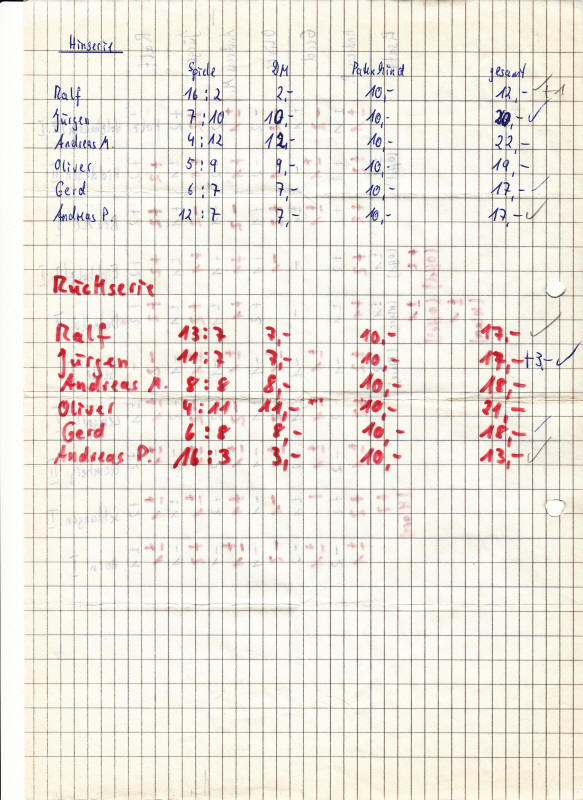 Hinserie
Spiele DM Patenkind gesamt
Ralf 16:2 2,- 10,- 12,- +1
Jürgen 7:10 10,- 10,- 20,- ✓
Andreas M. 4:12 12,- 10,- 22,-
Oliver 5:9 9,- 10,- 19,-
Gerd 6:7 7,- 10,- 17,- ✓
Andreas P. 12:7 7,- 10,- 17,- ✓
Rückserie
Ralf 13:7 7,- 10,- 17,- ✓
Jürgen 11:7 7,- 10,- 17,- +3,- ✓
Andreas M. 8:8 8,- 10,- 18,-
Oliver 4:11 11,- 10,- 21,-
Gerd 6:8 8,- 10,- 18,- ✓
Andreas P. 16:3 3,- 10,- 13,- ✓